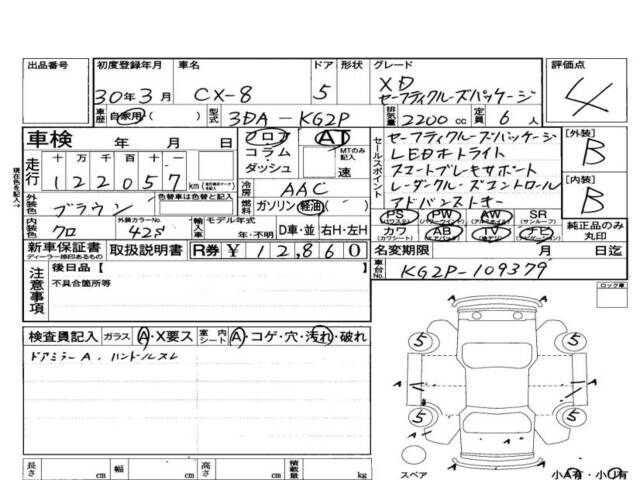 出品番号 初度登録年月 車名 ドア 形状 グレード 評価点
30年3月 CX-8 5 XD セーフティクルーズパッケージ 4
車歴 自家用( ) 型式 3DA-KG2P 排気量 2200cc 定員 6人
車検 年 月 日 フロア AT セールスポイント セーフティクルーズパッケージ [外装] B
走行 十 万 千 百 十 コラム MTのみ記入 LEDホトライト
122057 km ダッシュ 速 スマートブレーキサポート [内装] B
現在色を記入→ 外装色 ブラウン 色替車は色替と記入 冷房 AAC レーダークルーズコントロール
燃料 ガソリン 軽油( ) アドバンストキー
内装色 クロ 外装カラーNo. 42S 輸入車 モデル年式 年・不明 D車・並 右H・左H
PS (パワステ) PW (パワーウインド) AW (アルミホイル) SR (サンルーフ) 純正品のみ丸印
カワ (カワシート) AB (エアバッグ) TV (地デジ) ナビ (ナビゲーション)
新車保証書 ディーラー捺印あるもの 取扱説明書 R券 ¥12,860 名変期限 月 日迄
注意事項 後日品【 車台No. KG2P-109379
不具合箇所等 ロック車
検査員記入 ガラス A・X要ス 室内シート A・コゲ・穴・汚れ・破れ
ドアミラーA. ハンドルスレ
5 5
A A A
5 5
A
長さ cm 幅 cm 高さ cm 積載量 kg スペア 小A有・小U有